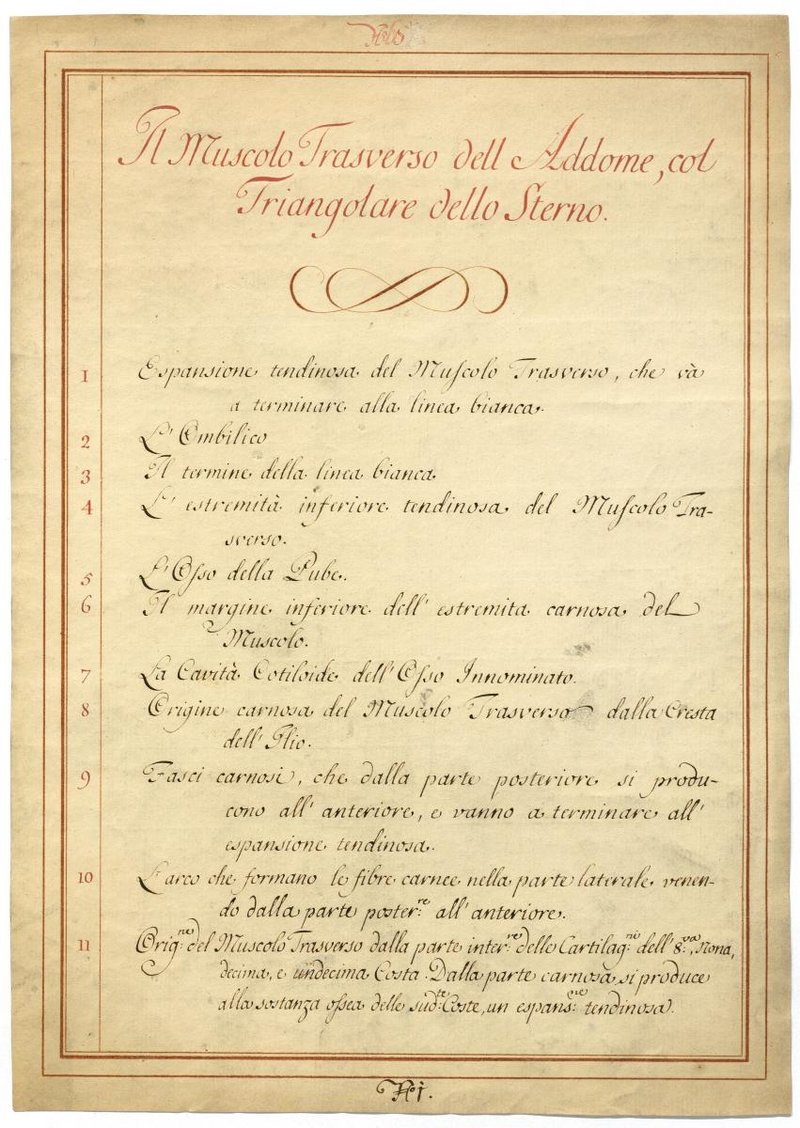 Il Muscolo Trasverso dell Addome, col
Triangolare dello Sterno.
1 Espansione tendinosa del Muſcolo Trasverso, che và
a terminare alla linea bianca.
2 L' Ombilico
3 Il termine della linea bianca
4 L' estremità inferiore tendinosa del Muſcolo Tra-
sverso.
5 L'Oſso della Pube.
6 Il margine inferiore dell' estremita carnosa del
Muscolo.
7 La Cavità Cotiloide dell' Oſso Innominato.
8 Origine carnosa del Muscolo Trasverso dalla Cresta
dell' Ilio.
9 Fasci carnosi, che dalla parte posteriore si produ-
cono all' anteriore, e vanno a terminare all'
espansione tendinosa.
10 L'arco che formano le fibre carnee nella parte laterale, venen-
do dalla parte poster:re all' anteriore.
11 Orig:ne del Muscolo Trasverso dalla parte inter:re delle Cartilag:ni dell' 8:va, Nona,
decima, e undecima Costa. Dalla parte carnosa si produce
alla sostanza oſsea delle sud:te Coste, un espans:ne tendinosa.